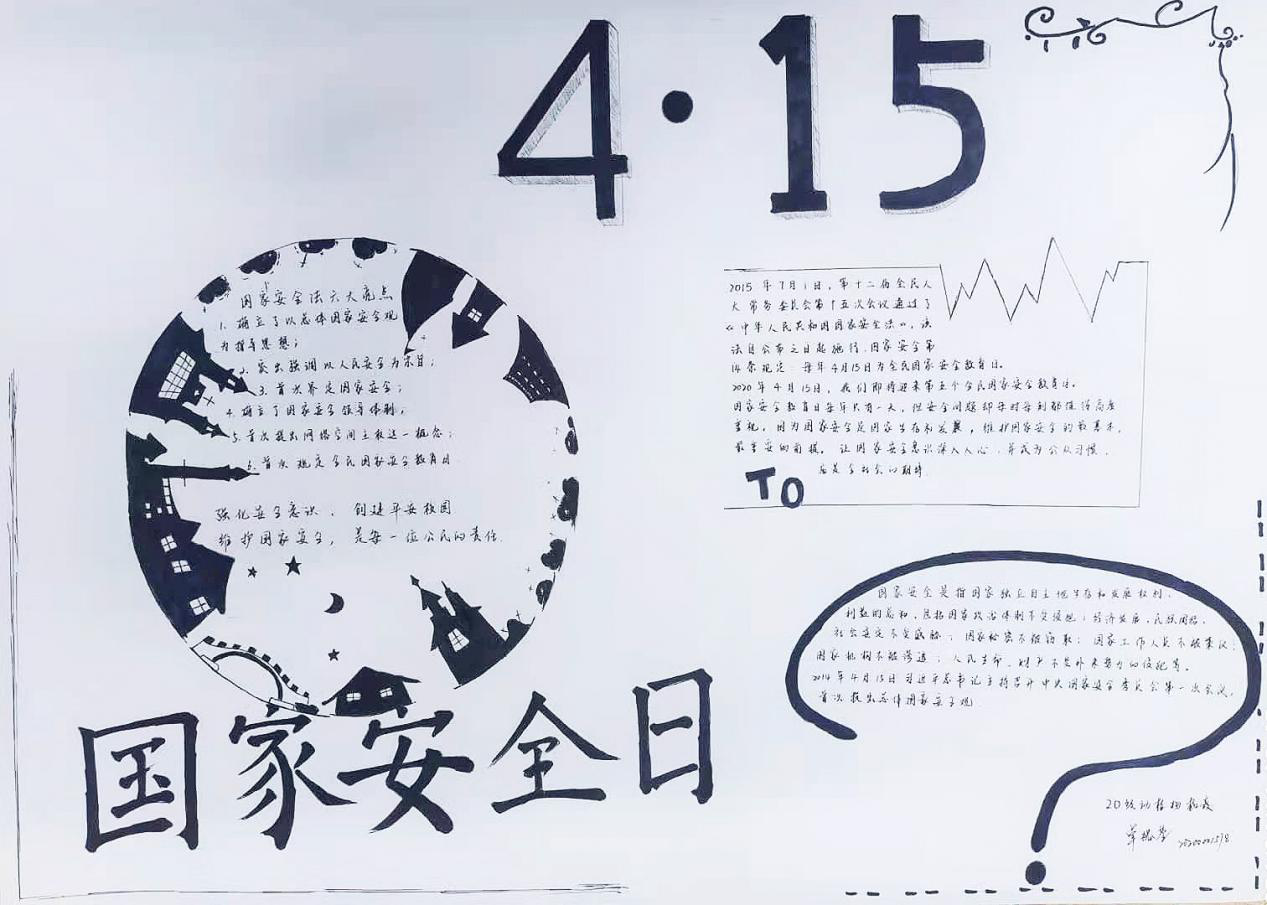 4·15
国家安全法六大亮点
1. 确立了以总体国家安全观
为指导思想；
2. 突出强调以人民安全为宗旨；
3. 首次界定国家安全；
4. 确立了国家安全领导体制；
5. 首次提出网络空间主权这一概念；
6. 首次规定全民国家安全教育日
强化安全意识、创建平安校园
维护国家安全，是每一位公民的责任.
国家安全日
2015 年 7月1日，第十二届全民人
大常务委员会第十五次会议通过了
《中华人民共和国国家安全法》，该
法自公布之日起施行.国家安全第
14条规定：每年4月15日为全民国家安全教育日.
2020年4月15日，我们即将迎来第五个全民国家安全教育日.
国家安全教育日每年只有一天，但安全问题却每时每刻都值得高度
重视，因为国家安全是国家生存和发展，维护国家安全的最基本，
最重要的前提。让国家安全意识深入人心，并成为公众习惯，
应是全社会的期待.
TO
国家安全是指国家独立自主地生存和发展权利、
利益的总和，包括国家政治体制不受侵犯；经济发展，民族团结，
社会安定不受威胁；国家秘密不被窃取；国家工作人员不被策反；
国家机构不被渗透；人民生命、财产不受外来势力的侵犯等。
2014年4月15日习近平总书记主持召开中央国家安全委员会第一次会议，
首次提出总体国家安全观
20级动植物检疫